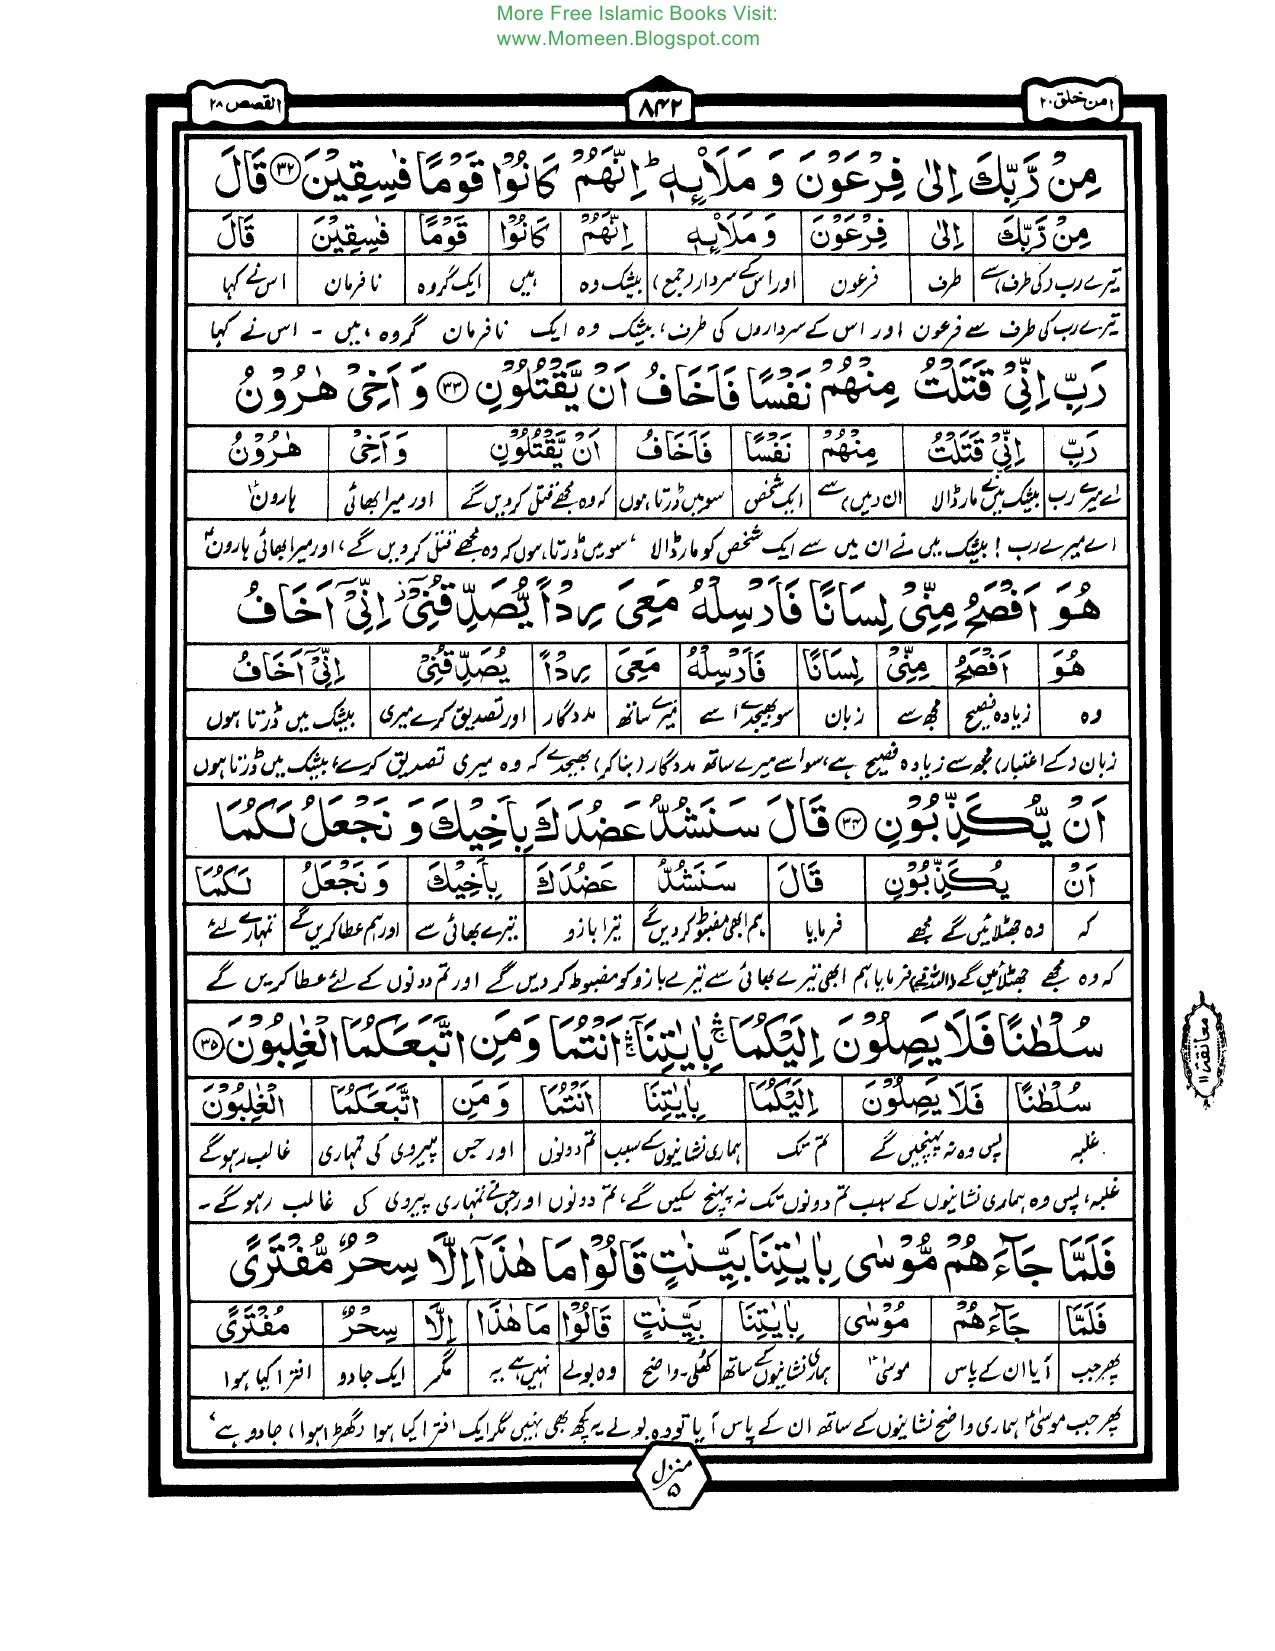 More Free Islamic Books Visit:
www.Momeen.Blogspot.com
امن خلق ۲۰
۸۴۲
القصص ۲۸
مِنْ رَّبِّكَ اِلٰى فِرْعَوْنَ وَ مَلَا۟ئِهٖ ؕ اِنَّهُمْ كَانُوْا قَوْمًا فٰسِقِيْنَ ﴿۳۲﴾ قَالَ
مِنْ رَّبِّكَ اِلٰى فِرْعَوْنَ وَ مَلَا۟ئِهٖ اِنَّهُمْ كَانُوْا قَوْمًا فٰسِقِيْنَ قَالَ
تیرے رب (کی طرف) سے طرف فرعون اور اس کے سردار (جمع) بیشک وہ ہیں ایک گروہ نافرمان اس نے کہا
تیرے رب کی طرف سے فرعون اور اس کے سرداروں کی طرف، بیشک وہ ایک نافرمان گروہ ہیں - اس نے کہا
رَبِّ اِنِّىْ قَتَلْتُ مِنْهُمْ نَفْسًا فَاَخَافُ اَنْ يَّقْتُلُوْنِ ﴿۳۳﴾ وَ اَخِىْ هٰرُوْنُ
رَبِّ اِنِّىْ قَتَلْتُ مِنْهُمْ نَفْسًا فَاَخَافُ اَنْ يَّقْتُلُوْنِ وَ اَخِىْ هٰرُوْنُ
اے میرے رب بیشک میں نے مار ڈالا ان (میں) سے ایک شخص سو میں ڈرتا ہوں کہ وہ مجھے قتل کر دیں گے اور میرا بھائی ہارونؑ
اے میرے رب! بیشک میں نے ان میں سے ایک شخص کو مار ڈالا، سو میں ڈرتا ہوں کہ وہ مجھے قتل کر دیں گے، اور میرا بھائی ہارونؑ
هُوَ اَفْصَحُ مِنِّىْ لِسَانًا فَاَرْسِلْهُ مَعِىَ رِدْاً يُّصَدِّقُنِىْۤ ؗ اِنِّىْۤ اَخَافُ
هُوَ اَفْصَحُ مِنِّىْ لِسَانًا فَاَرْسِلْهُ مَعِىَ رِدْاً يُصَدِّقُنِىْ اِنِّىْۤ اَخَافُ
وہ زیادہ فصیح مجھ سے زبان سو بھیجدے اسے میرے ساتھ مددگار اور تصدیق کرے میری بیشک میں ڈرتا ہوں
زبان (کے اعتبار) مجھ سے زیادہ فصیح ہے، سو اسے میرے ساتھ مددگار (بنا کر) بھیجدے کہ وہ میری تصدیق کرے، بیشک میں ڈرتا ہوں
اَنْ يُّكَذِّبُوْنِ ﴿۳۴﴾ قَالَ سَنَشُدُّ عَضُدَكَ بِاَخِيْكَ وَ نَجْعَلُ لَكُمَا
اَنْ يُكَذِّبُوْنِ قَالَ سَنَشُدُّ عَضُدَكَ بِاَخِيْكَ وَ نَجْعَلُ لَكُمَا
کہ وہ جھٹلائیں گے مجھے فرمایا ہم ابھی مضبوط کر دیں گے تیرا بازو تیرے بھائی سے اور ہم عطا کریں گے تمہارے لئے
کہ وہ مجھے جھٹلائیں گے (اللہ نے) فرمایا ہم ابھی تیرے بھائی سے تیرے بازو کو مضبوط کر دیں گے اور تم دونوں کے لئے عطا کریں گے
سُلْطٰنًا فَلَا يَصِلُوْنَ اِلَيْكُمَا ۛۚ بِاٰيٰتِنَاۤ ۛۚ اَنْتُمَا وَ مَنِ اتَّبَعَكُمَا الْغٰلِبُوْنَ ﴿۳۵﴾
معانقۃ ۱۱
سُلْطٰنًا فَلَا يَصِلُوْنَ اِلَيْكُمَا بِاٰيٰتِنَا اَنْتُمَا وَ مَنِ اتَّبَعَكُمَا الْغٰلِبُوْنَ
غلبہ پس وہ نہ پہنچیں گے تم تک ہماری نشانیوں کے سبب تم دونوں اور جس پیروی کی تمہاری غالب رہو گے
غلبہ، پس وہ ہماری نشانیوں کے سبب تم دونوں تک نہ پہنچ سکیں گے، تم دونوں اور جس نے تمہاری پیروی کی غالب رہو گے -
فَلَمَّا جَآءَهُمْ مُّوْسٰى بِاٰيٰتِنَا بَيِّنٰتٍ قَالُوْا مَا هٰذَاۤ اِلَّا سِحْرٌ مُّفْتَرًى
فَلَمَّا جَآءَهُمْ مُوْسٰى بِاٰيٰتِنَا بَيِّنٰتٍ قَالُوْا مَا هٰذَا اِلَّا سِحْرٌ مُفْتَرًى
پھر جب آیا ان کے پاس موسیٰؑ ہماری نشانیوں کے ساتھ کھلی - واضح وہ بولے نہیں ہے یہ مگر ایک جادو افترا کیا ہوا
پھر جب موسیٰؑ ہماری واضح نشانیوں کے ساتھ ان کے پاس آیا تو وہ بولے یہ کچھ بھی نہیں مگر ایک افترا کیا ہوا (گھڑا ہوا) جادو ہے،
منزل ۵